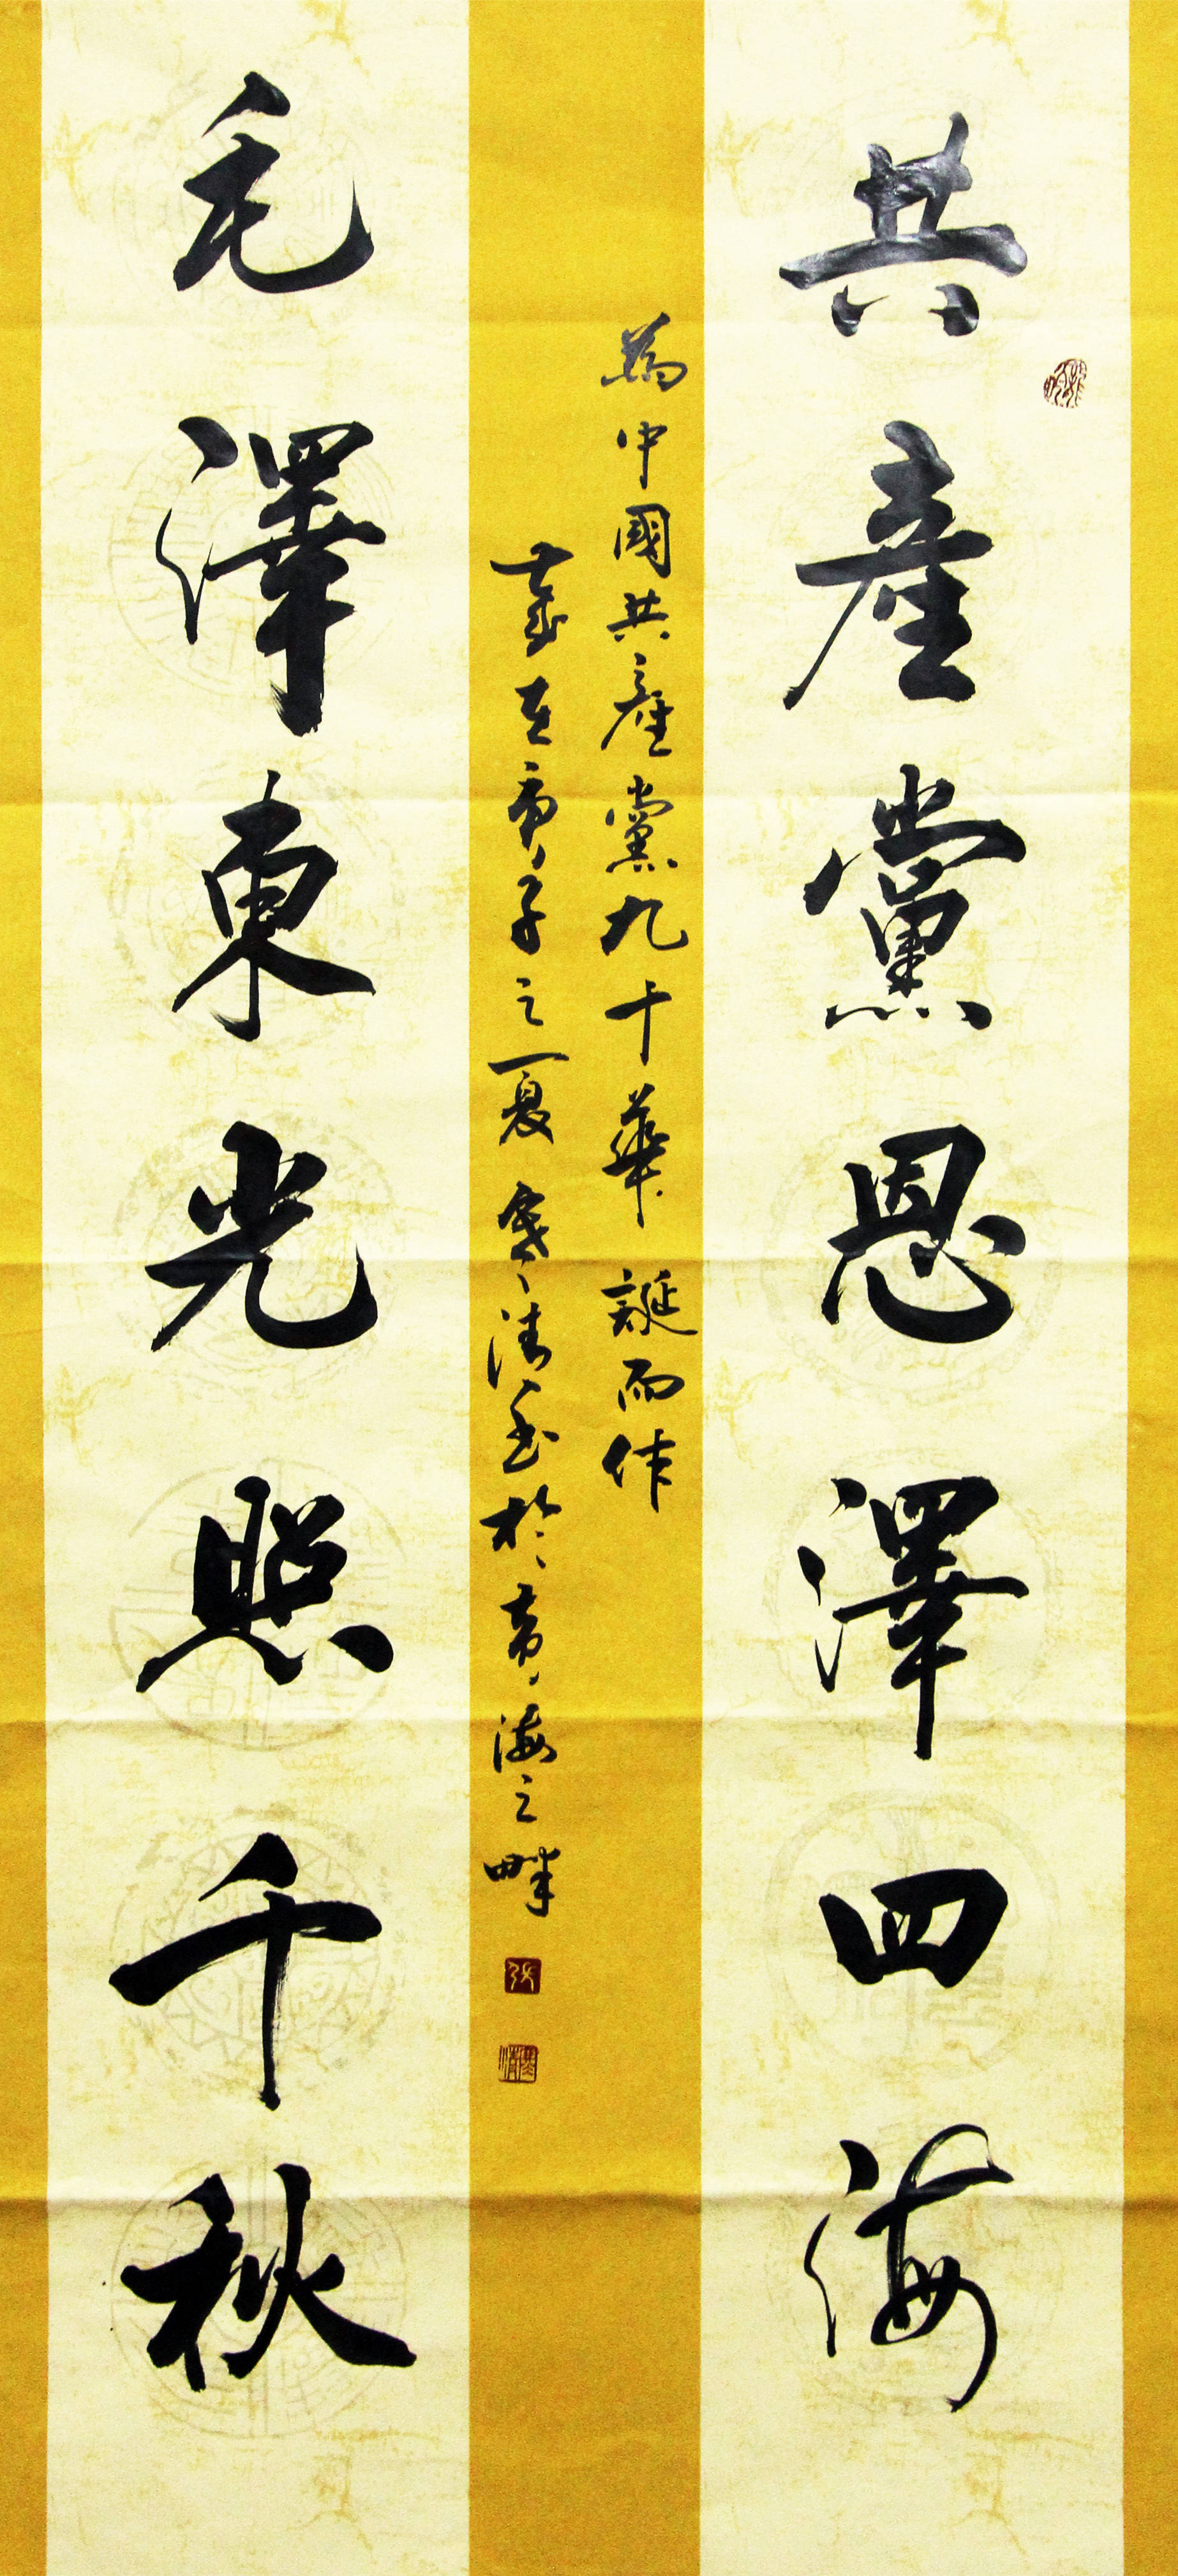 共產黨恩澤四海
為中國共產黨九十華誕而作
歲在庚子之夏寒清書於青海之畔
毛澤東光照千秋
張